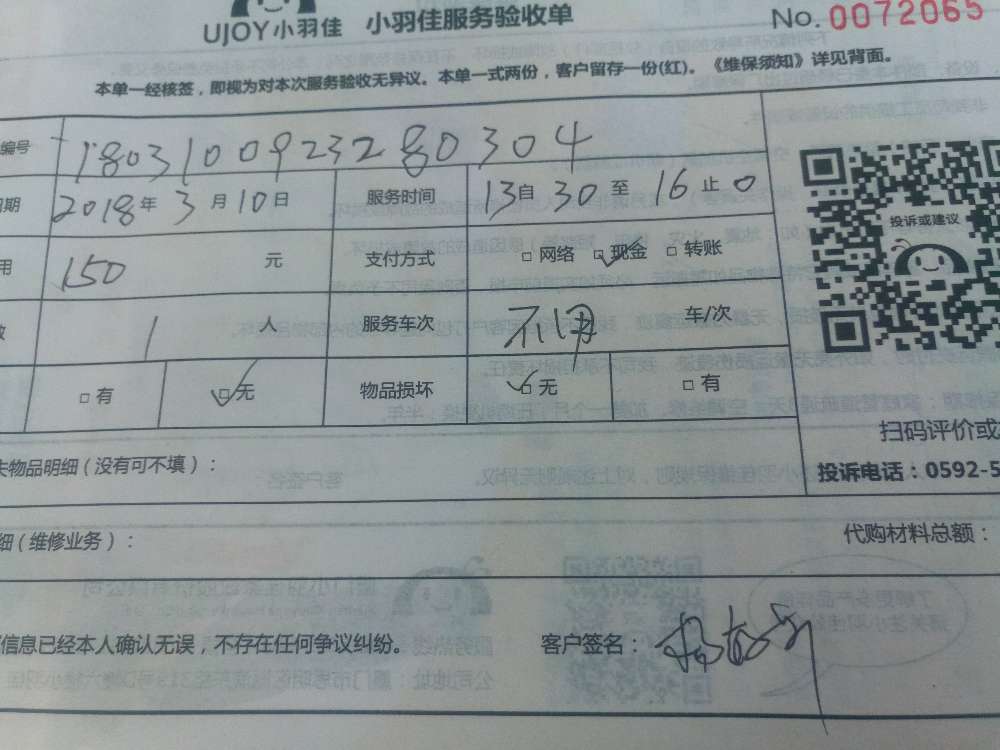 UJOY小羽佳 小羽佳服务验收单 No. 0072065
本单一经核签，即视为对本次服务验收无异议。本单一式两份，客户留存一份(红)。《维保须知》详见背面。
编号 180310092328 0304
期 2018年 3月10日 服务时间 13自30至16止0
用 150 元 支付方式 □网络 ☑现金 □转账
数 1 人 服务车次 不用 车/次
□有 ☑无 物品损坏 ☑无 □有
投诉或建议
扫码评价或
投诉电话：0592-5
失物品明细（没有可不填）：
细（维修业务）： 代购材料总额：
信息已经本人确认无误，不存在任何争议纠纷。 客户签名：